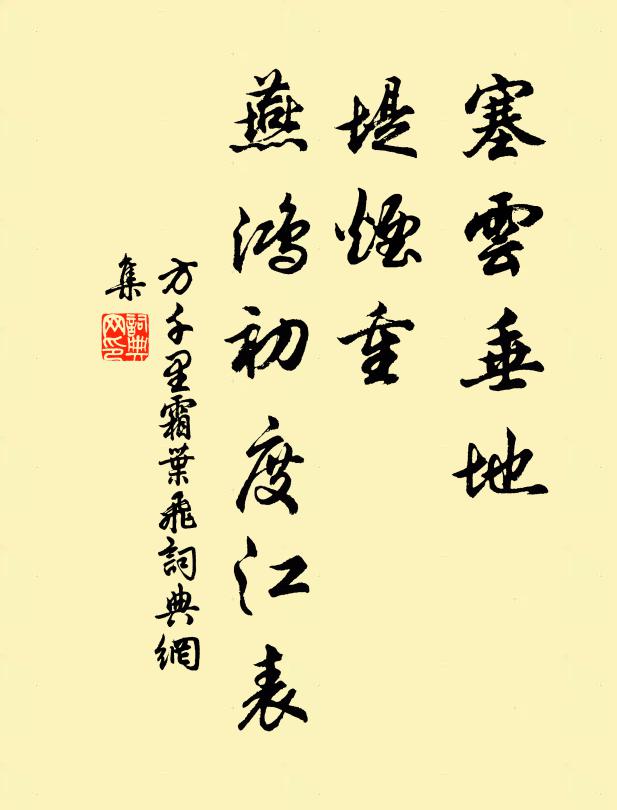 塞雲垂地
堤煙重
燕鴻初度江表
方千里霜葉飛詞典網
集
詞典
网印